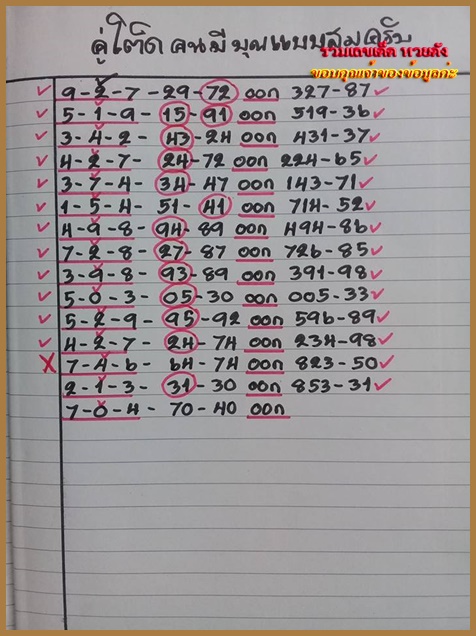 คู่โต๊ด คนมีบุญแบบสมครับ
รวมเลขเด็ด หวยดัง
ขอบคุณเจ้าของข้อมูลค่ะ
9-2-7-29-72 ออก 327-87
5-1-9-15-91 ออก 519-36
3-4-2-43-24 ออก 431-37
4-2-7-24-72 ออก 224-65
3-7-4-34-47 ออก 143-71
1-5-4-51-41 ออก 714-52
4-9-8-94-89 ออก 494-86
7-2-8-27-87 ออก 726-85
3-9-8-93-89 ออก 391-98
5-0-3-05-30 ออก 005-33
5-2-9-95-92 ออก 596-89
4-2-7-24-74 ออก 234-98
7-4-6-64-74 ออก 823-50
2-1-3-31-30 ออก 853-31
7-0-4-70-40 ออก